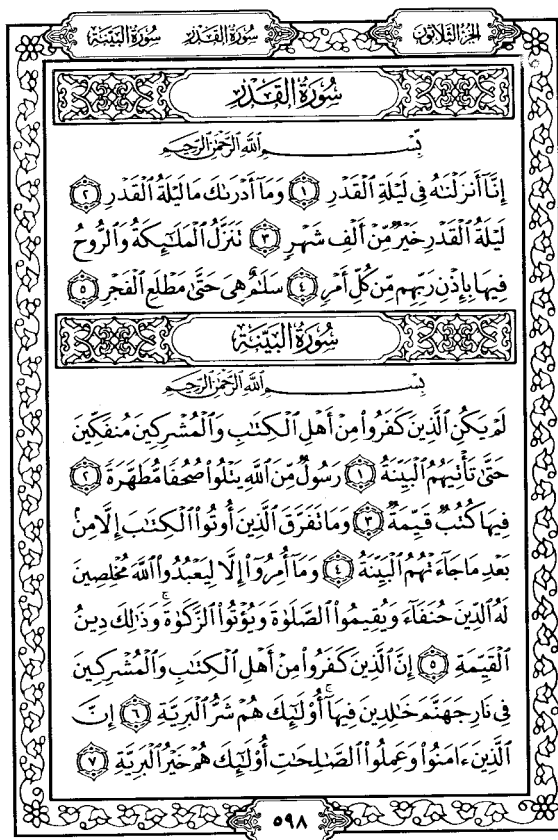 الجزء الثلاثون
سورة القدر
سورة البينة
سُورَةُ القَدْرِ
بِسْمِ ٱللَّهِ ٱلرَّحْمَٰنِ ٱلرَّحِيمِ
إِنَّآ أَنزَلْنَٰهُ فِى لَيْلَةِ ٱلْقَدْرِ ١ وَمَآ أَدْرَىٰكَ مَا لَيْلَةُ ٱلْقَدْرِ ٢
لَيْلَةُ ٱلْقَدْرِ خَيْرٌ مِّنْ أَلْفِ شَهْرٍ ٣ تَنَزَّلُ ٱلْمَلَٰٓئِكَةُ وَٱلرُّوحُ
فِيهَا بِإِذْنِ رَبِّهِم مِّن كُلِّ أَمْرٍ ٤ سَلَٰمٌ هِىَ حَتَّىٰ مَطْلَعِ ٱلْفَجْرِ ٥
سُورَةُ البَيِّنَةِ
بِسْمِ ٱللَّهِ ٱلرَّحْمَٰنِ ٱلرَّحِيمِ
لَمْ يَكُنِ ٱلَّذِينَ كَفَرُوا۟ مِنْ أَهْلِ ٱلْكِتَٰبِ وَٱلْمُشْرِكِينَ مُنفَكِّينَ
حَتَّىٰ تَأْتِيَهُمُ ٱلْبَيِّنَةُ ١ رَسُولٌ مِّنَ ٱللَّهِ يَتْلُوا۟ صُحُفًا مُّطَهَّرَةً ٢
فِيهَا كُتُبٌ قَيِّمَةٌ ٣ وَمَا تَفَرَّقَ ٱلَّذِينَ أُوتُوا۟ ٱلْكِتَٰبَ إِلَّا مِنۢ
بَعْدِ مَا جَآءَتْهُمُ ٱلْبَيِّنَةُ ٤ وَمَآ أُمِرُوٓا۟ إِلَّا لِيَعْبُدُوا۟ ٱللَّهَ مُخْلِصِينَ
لَهُ ٱلدِّينَ حُنَفَآءَ وَيُقِيمُوا۟ ٱلصَّلَوٰةَ وَيُؤْتُوا۟ ٱلزَّكَوٰةَ ۚ وَذَٰلِكَ دِينُ
ٱلْقَيِّمَةِ ٥ إِنَّ ٱلَّذِينَ كَفَرُوا۟ مِنْ أَهْلِ ٱلْكِتَٰبِ وَٱلْمُشْرِكِينَ
فِى نَارِ جَهَنَّمَ خَٰلِدِينَ فِيهَآ ۚ أُو۟لَٰٓئِكَ هُمْ شَرُّ ٱلْبَرِيَّةِ ٦ إِنَّ
ٱلَّذِينَ ءَامَنُوا۟ وَعَمِلُوا۟ ٱلصَّٰلِحَٰتِ أُو۟لَٰٓئِكَ هُمْ خَيْرُ ٱلْبَرِيَّةِ ٧
٥٩٨